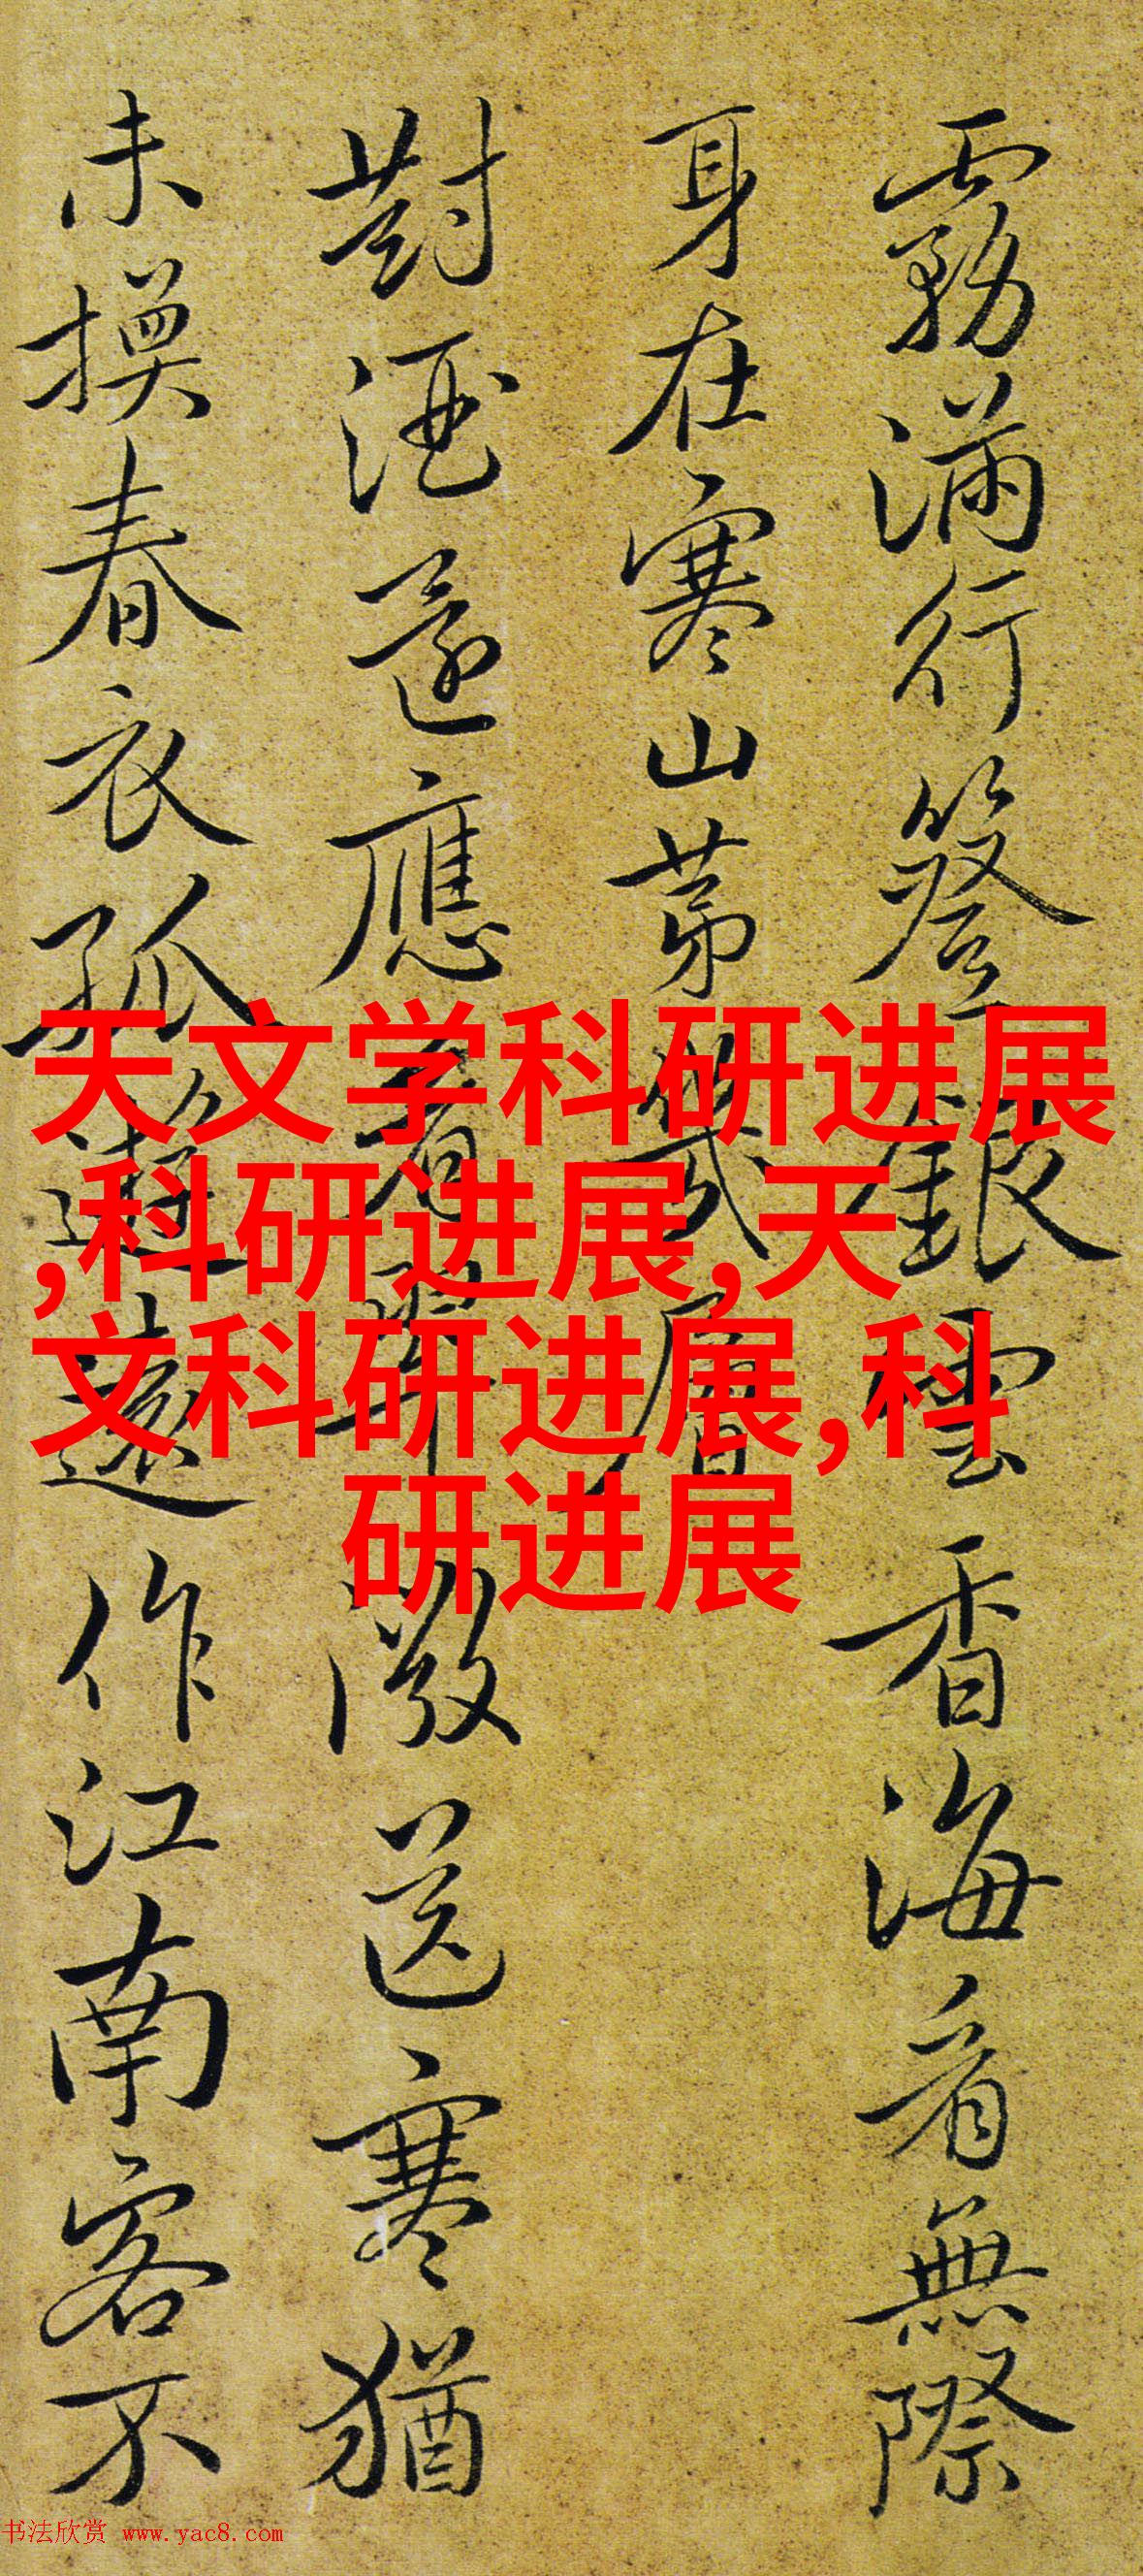 霧滿行簦銀雲香海看無際
身在寒山第幾層
對酒還應送寒猶
未換春衣孤遊遠作江南客不
天文学科研进展
,科研进展,天
文科研进展,科
研进展
书法欣赏 www.yac8.com